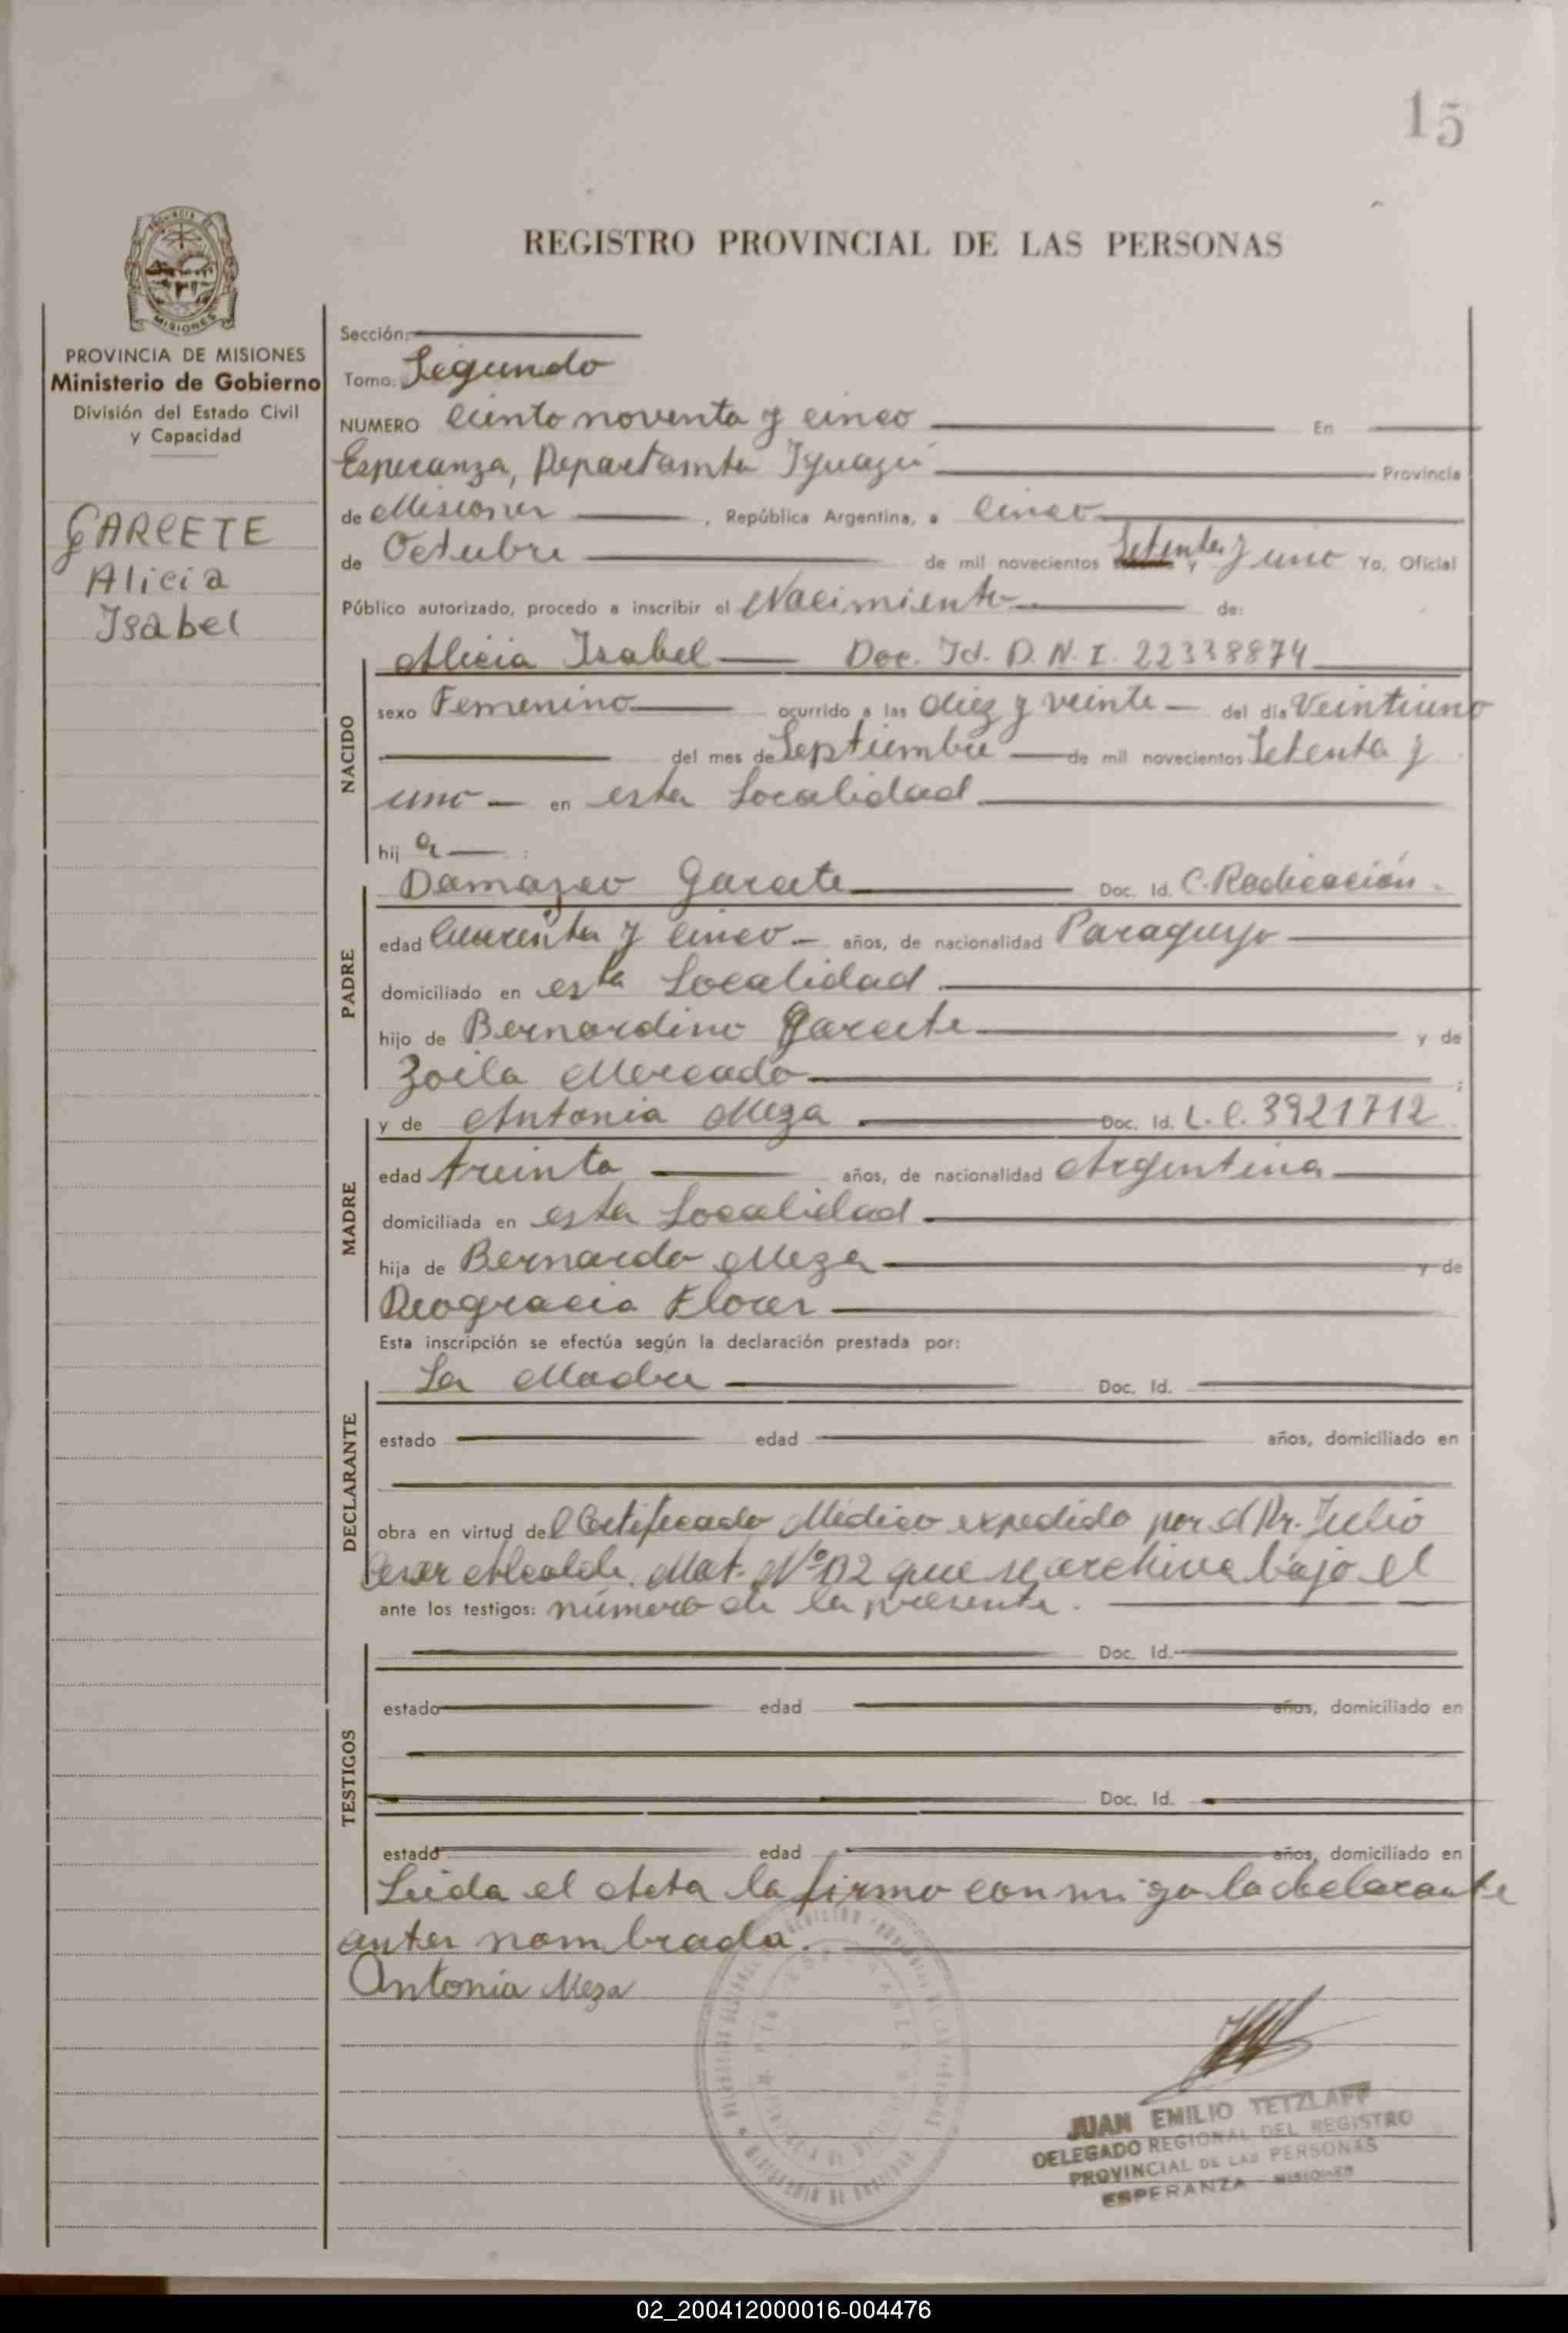 15
REGISTRO PROVINCIAL DE LAS PERSONAS
MISIONES
PROVINCIA DE MISIONES
Ministerio de Gobierno
División del Estado Civil
y Capacidad
GARCETE
Alicia
Isabel
Sección:
Tomo: Segundo
NUMERO Ciento noventa y cinco En
Esperanza, Departamto Iguazú Provincia
de Misiones , República Argentina, a Cinco
de Octubre de mil novecientos Setenta y uno Yo, Oficial
Público autorizado, procedo a inscribir el Nacimiento de:
NACIDO
Alicia Isabel Doc. Id. D.N.I. 22338874
sexo Femenino ocurrido a las diez y veinte del día Veintiuno
del mes de Septiembre de mil novecientos Setenta y
uno en esta Localidad
hij a :
PADRE
Damazeo Garcete Doc. Id. C. Radicación
edad Cuarenta y cinco años, de nacionalidad Paraguyo
domiciliado en esta Localidad
hijo de Bernardino Garcete y de
Zoila Mercado ;
MADRE
y de Antonia Meza Doc. Id. L.C. 3921712
edad treinta años, de nacionalidad Argentina
domiciliada en esta Localidad
hija de Bernardo Meza y de
Deogracia Flores
Esta inscripción se efectúa según la declaración prestada por:
DECLARANTE
La Madre Doc. Id.
estado edad años, domiciliado en
obra en virtud del Certificado Médico expedido por el Dr. Julio
Cesar Alcalde. Mat. Nº que se archiva bajo el
ante los testigos: número de la presente.
TESTIGOS
Doc. Id.
estado edad años, domiciliado en
Doc. Id.
estado edad años, domiciliado en
Leida el Acta la firmo conmigo la declarante
antes nombrada.
Antonia Meza
JUAN EMILIO TETZLAFF
DELEGADO REGIONAL DEL REGISTRO
PROVINCIAL DE LAS PERSONAS
ESPERANZA - MISIONES
02_200412000016-004476